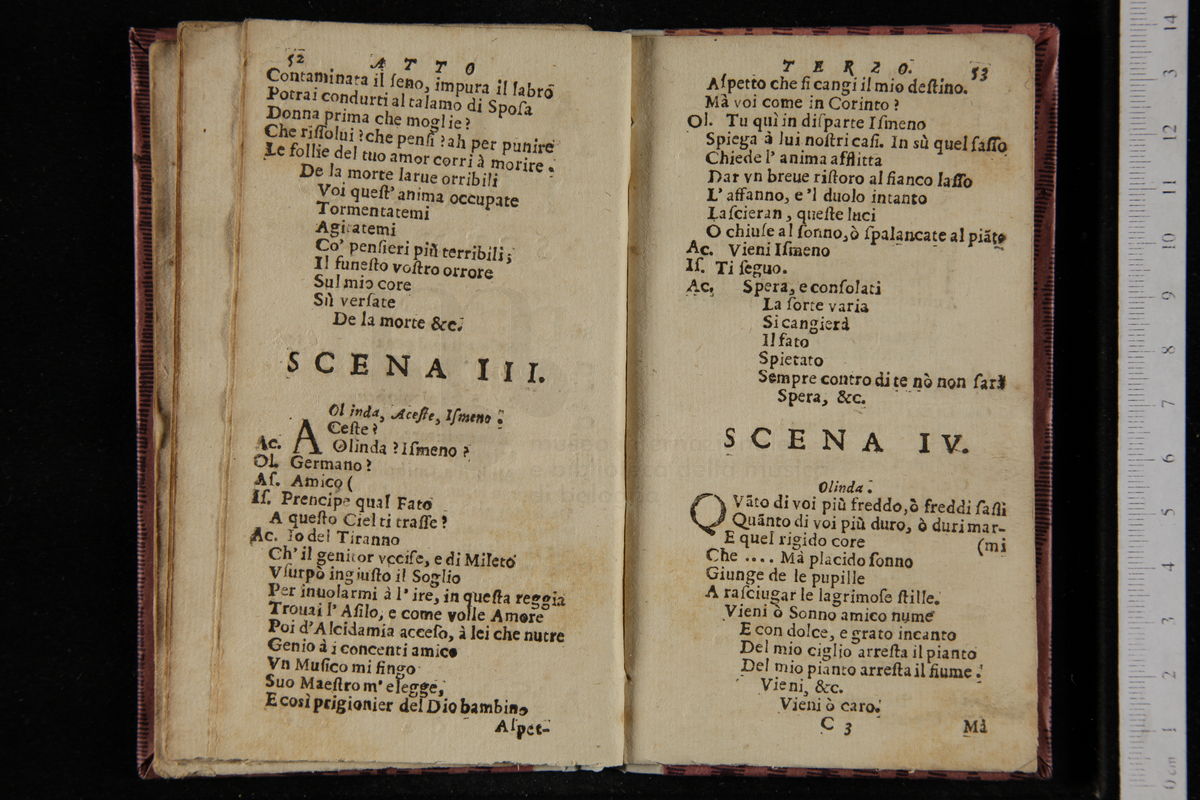 52 ATTO
Contaminata il ſeno, impura il labrõ
Potrai condurti al talamo di Spoſa
Donna prima che moglie?
Che riſſolui? che penſi? ah per punire
Le follie del tuo amor corri à morire.
De la morte larue orribili
Voi queſt' anima occupate
Tormentatemi
Agitatemi
Co' penſieri più terribili;
Il funeſto voſtro orrore
Sul mio core
Sù verſate
De la morte &c.
SCENA III.
Olinda, Aceſte, Iſmeno.
ACeſte?
Ac. Olinda? Iſmeno?
Ol. Germano?
Aſ. Amico (
Iſ. Prencipe qual Fato
A queſto Ciel ti traſſe?
Ac. Io del Tiranno
Ch' il genitor vcciſe, e di Mileto
Vſurpò ingiuſto il Soglio
Per inuolarmi à l' ire, in queſta reggia
Trouai l' Aſilo, e come volle Amore
Poi d'Alcidamia acceſo, à lei che nutre
Genio à i concenti amico
Vn Muſico mi fingo
Suo Maeſtro m' elegge,
E così prigionier del Dio bambino
Aſpet-
TERZO. 53
Aſpetto che ſi cangi il mio deſtino.
Mà voi come in Corinto?
Ol. Tu quì in diſparte Iſmeno
Spiega à lui noſtri caſi. In sù quel ſaſſo
Chiede l' anima afflitta
Dar vn breue riſtoro al fianco laſſo
L' affanno, e 'l duolo intanto
Laſcieran, queſte luci
O chiuſe al ſonno, ò ſpalancate al piãto
Ac. Vieni Iſmeno
Iſ. Ti ſeguo.
Ac. Spera, e conſolati
La ſorte varia
Si cangierà
Il fato
Spietato
Sempre contro di te nò non ſarà
Spera, &c.
SCENA IV.
Olinda.
QVãto di voi più freddo, ò freddi ſaſſi
Quãnto di voi più duro, ò duri mar-
E quel rigido core (mi
Che .... Mà placido ſonno
Giunge de le pupille
A raſciugar le lagrimoſe ſtille.
Vieni ò Sonno amico nume
E con dolce, e grato incanto
Del mio ciglio arreſta il pianto
Del mio pianto arreſta il fiume.
Vieni, &c.
Vieni ò caro.
C 3 Mà